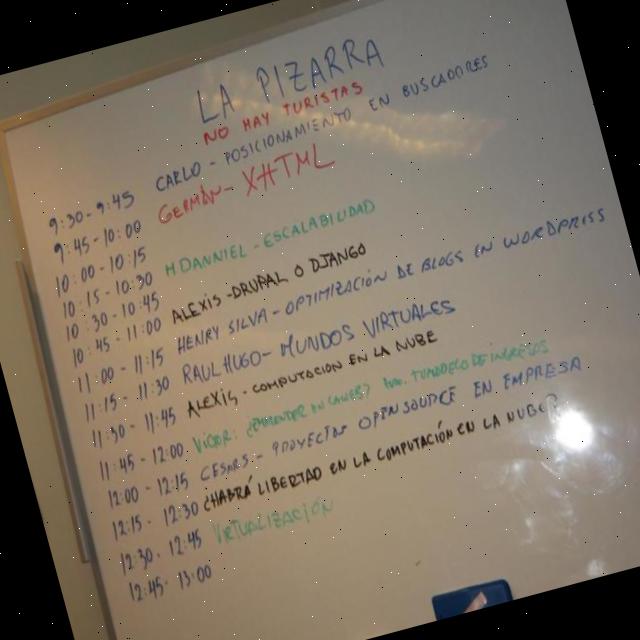 LA PIZARRA
NO HAY TURISTAS
9:30-9:45 CARLO - POSICIONAMIENTO EN BUSCADORES
9:45-10:00 GERMÁN- XHTML
10:00-10:15
10:15-10:30 H DANNIEL - ESCALABILIDAD
10:30-10:45
10:45-11:00 ALEXIS -DRUPAL O DJANGO
11:00 - 11:15 HENRY SILVA - OPTIMIZACIÓN DE BLOGS EN WORDPRESS
11:15 - 11:30 RAUL HUGO - MUNDOS VIRTUALES
11:30 - 11:45 ALEXIS - COMPUTACION EN LA NUBE
11:45 - 12:00 DE INGRESOS
12:00 - 12:15 PROYECTOS OPENSOURCE EN EMPRESA
12:15 - 12:30 ¿HABRÁ LIBERTAD EN LA COMPUTACIÓN EN LA NUBE?
12:30 - 12:45 VIRTUALIZACIÓN
12:45 - 13:00